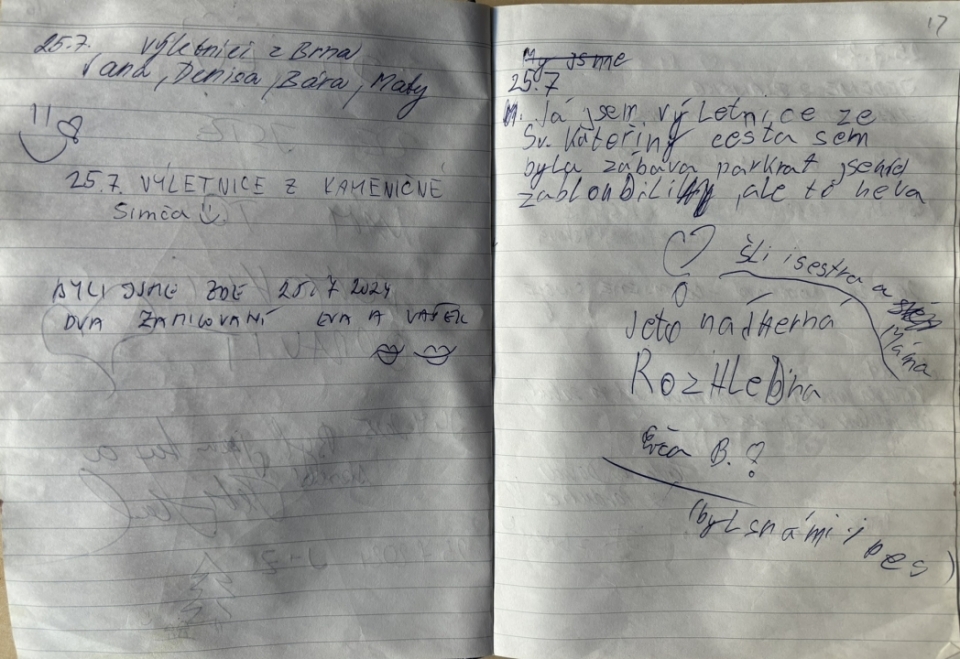 25.7. výletníci z Brna
Jana, Denisa, Bára, Maty
25.7. VÝLETNICE Z KAMENIČNÉ
Simča
BYLI JSME ZDE 25. 7 2024
DVA ZAMILOVANÍ EVA A VAŠEK
17
My jsme
25.7
Já jsem výletnice ze
Sv. Kateřiny cesta sem
byla zábava párkrát jsem
zabloudili, ale to neva
šli i sestra a
Máma
Jeto nádherná
RozHleDna
Evča B.
(byl snámi i pes)